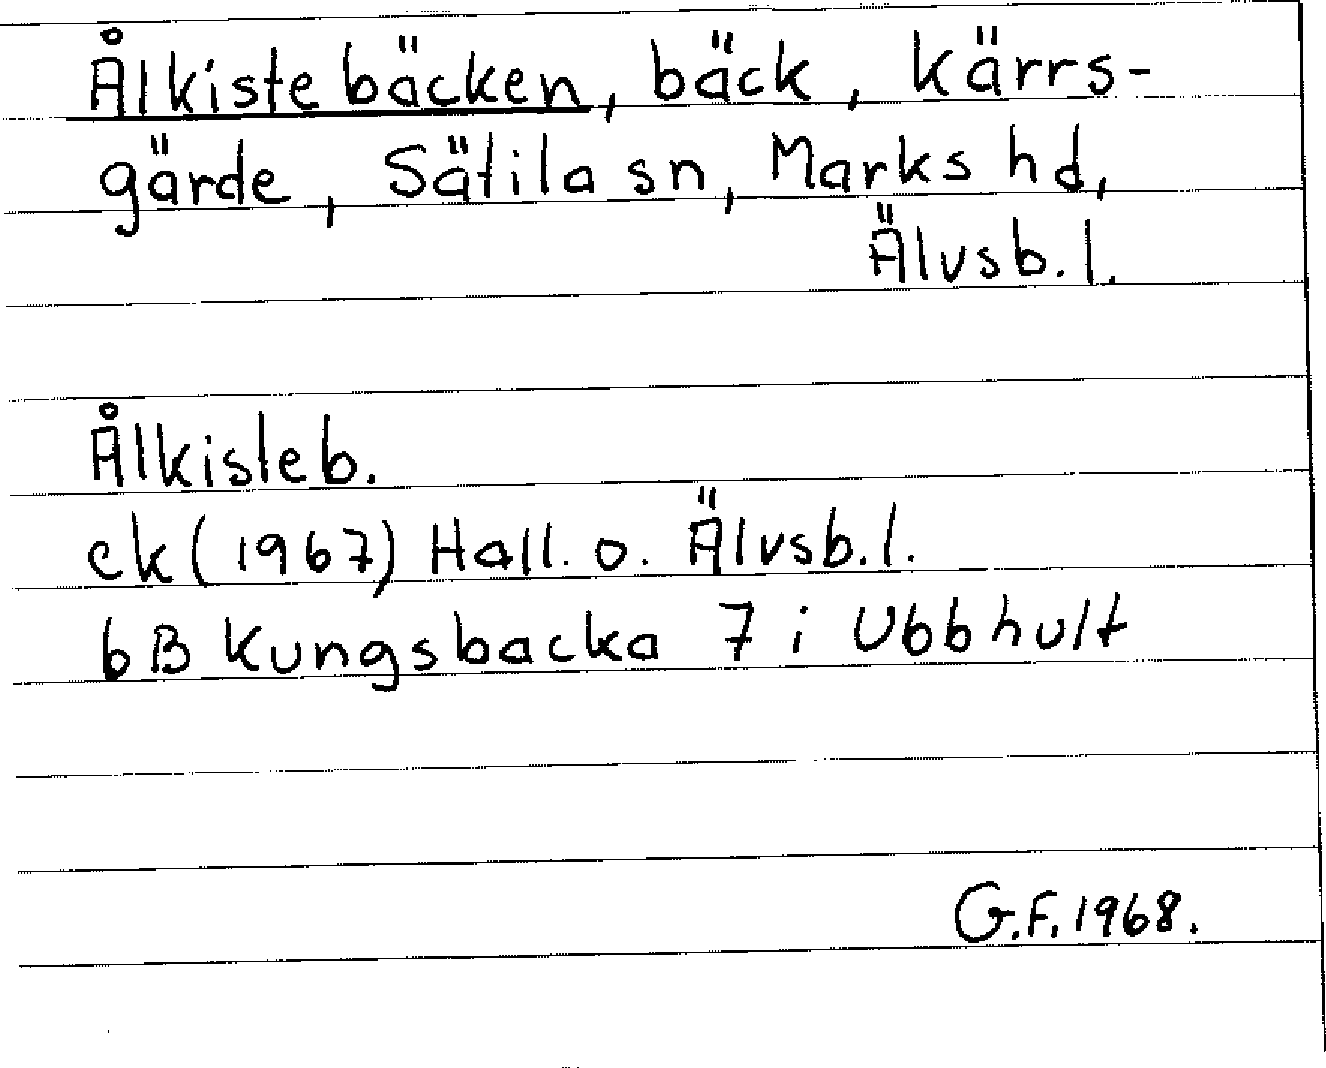 Ålkistebäcken, bäck, Kärrs-
gärde, Sätila sn, Marks hd,
Älvsb. l.
Ålkisteb.
ek (1967) Hall. o. Älvsb. l.
6B Kungsbacka 7 i Ubbhult
G.F. 1968.